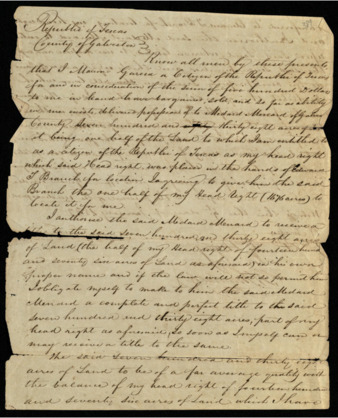 Republic of Texas
County of Galveston
Know all men by these presents
that I Garcia a Citizen of the Republic of Texas
for and in consideration of the sum of five hundred Dollars
to me in hand have bargained, sold, and so far as
deliver possession to Medard Menard of
County seven hundred and thirty eight acres
it being one half of the Land to which I am entitled to
as a citizen of the Republic of Texas as my head right
which said Head right was placed in the hands of Edward
T Branch for location I agreeing to give him the said
Branch the one half of my Head Right (1476 acres) to
locate it for me
I authorise the said Medard Menard to receive a
to the said seven hundred and thirty eight acres
of Land (the half of my Head right of fourteen hund
and seventy six acres of Land as aforesaid) in his own
proper name and if the law will not so permit him
I obligate myself to make to him the said Medard
Menard a complete and perfect title to the said
seven hundred and thirty eight acres, part of my
head right as aforesaid so soon as I myself can or
may receive a title to the same
The said seven hundred and thirty eight
acres of Land to be of a fair average quality with
the balance of my head right of fourteen hundred
and seventy six acres of Land which I have